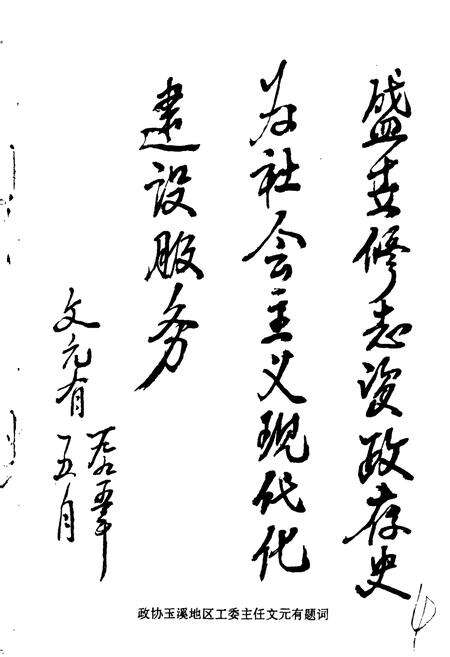 盛世修志资政存史
为社会主义现代化
建设服务
文元有
一九九五年
五月
政协玉溪地区工委主任文元有题词